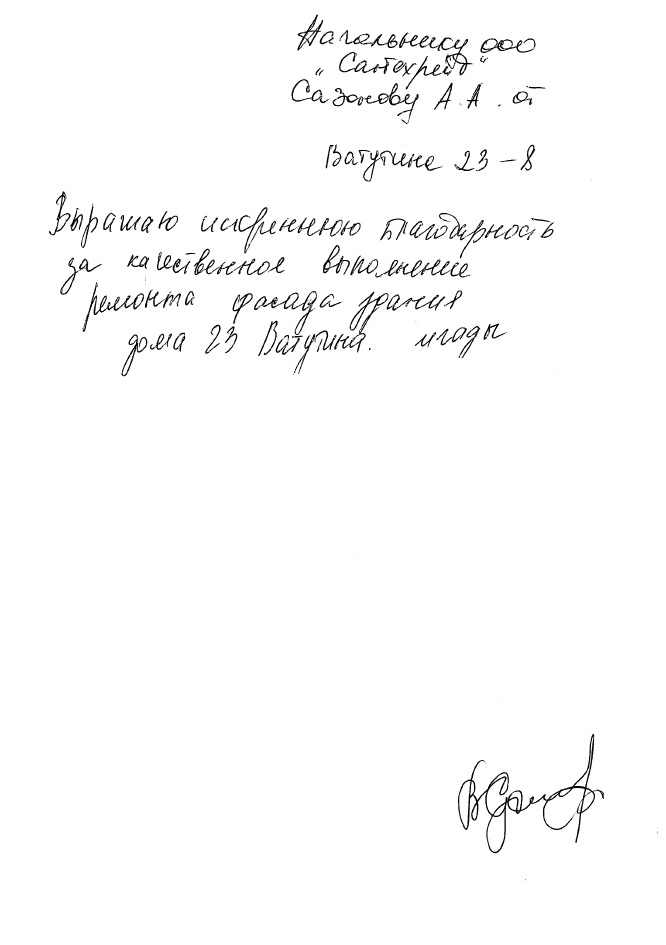 Начальнику ооо
"Сантехрейд"
Сазонову А.А. от
Ватутине 23-8
Выражаю искреннюю благодарность
за качественное выполнение
ремонта фасада здания
дома 23 Ватутина.